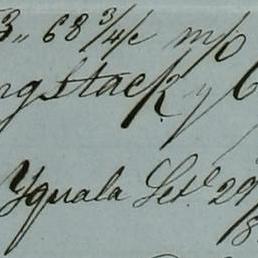 3,, 68 3/4 c m/o
ngstack y C
Yguala Set.e 29